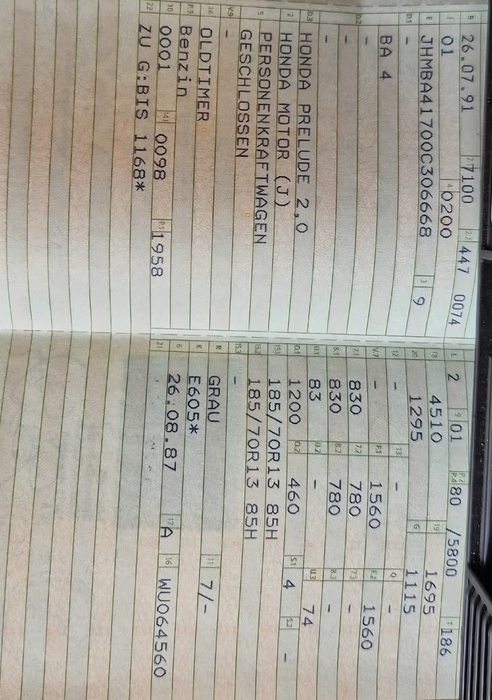 26.07.91 7100 447 0074
01 0200
JHMBA41700C306668 9
-
BA 4
-
-
-
HONDA PRELUDE 2,0
HONDA MOTOR (J)
PERSONENKRAFTWAGEN
GESCHLOSSEN
-
OLDTIMER
Benzin
0001 0098 1958
ZU G:BIS 1168*
2 01 80 /5800 186
4510 1695
1295 1115
- - -
- 1560 1560
830 780 -
830 780 -
83 - 74
1200 460 4 -
185/70R13 85H
185/70R13 85H
-
GRAU 7/-
E605*
26.08.87 A WU064560